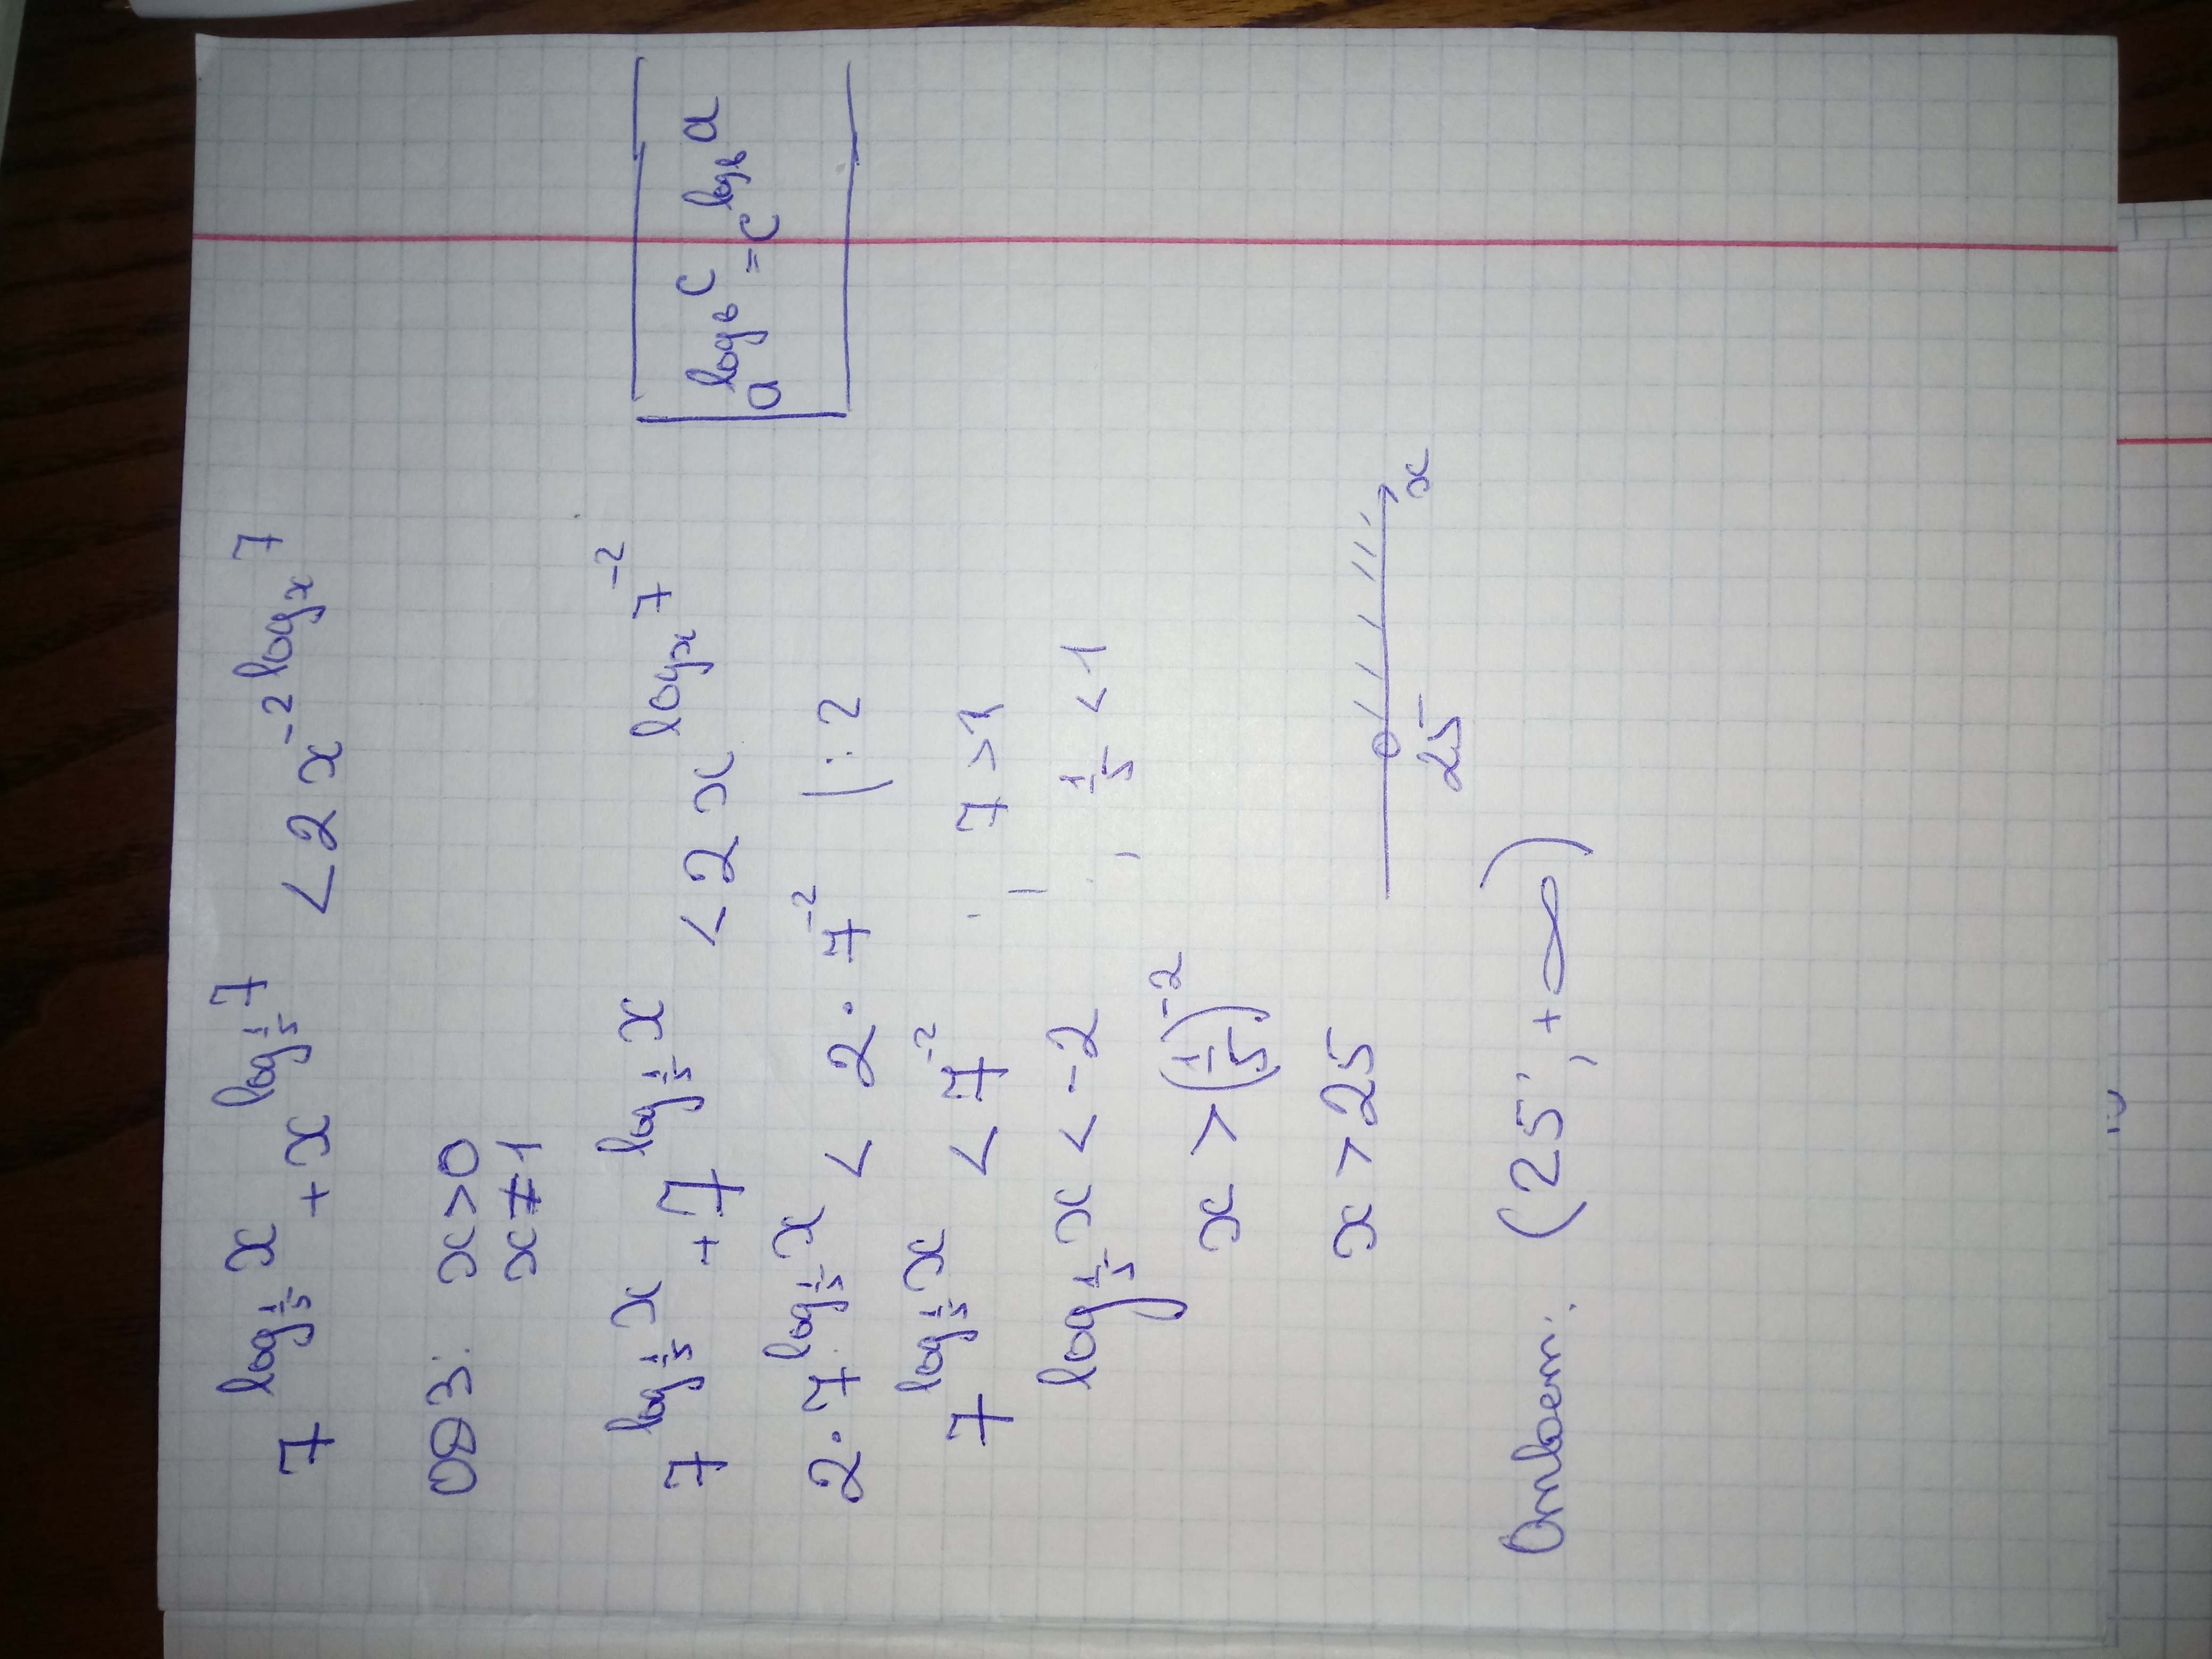 7^{log_{1/5} x} + x^{log_{1/5} 7} < 2x^{-2 log_x 7}
ОДЗ: x>0
x≠1
7^{log_{1/5} x} + 7^{log_{1/5} x} < 2x^{log_x 7^{-2}}
a^{log_b c} = c^{log_b a}
2·7^{log_{1/5} x} < 2·7^{-2} |:2
7^{log_{1/5} x} < 7^{-2} 7>1
log_{1/5} x < -2 1/5 < 1
x > (1/5)^{-2}
x > 25
25 x
Ответ: (25; +∞)